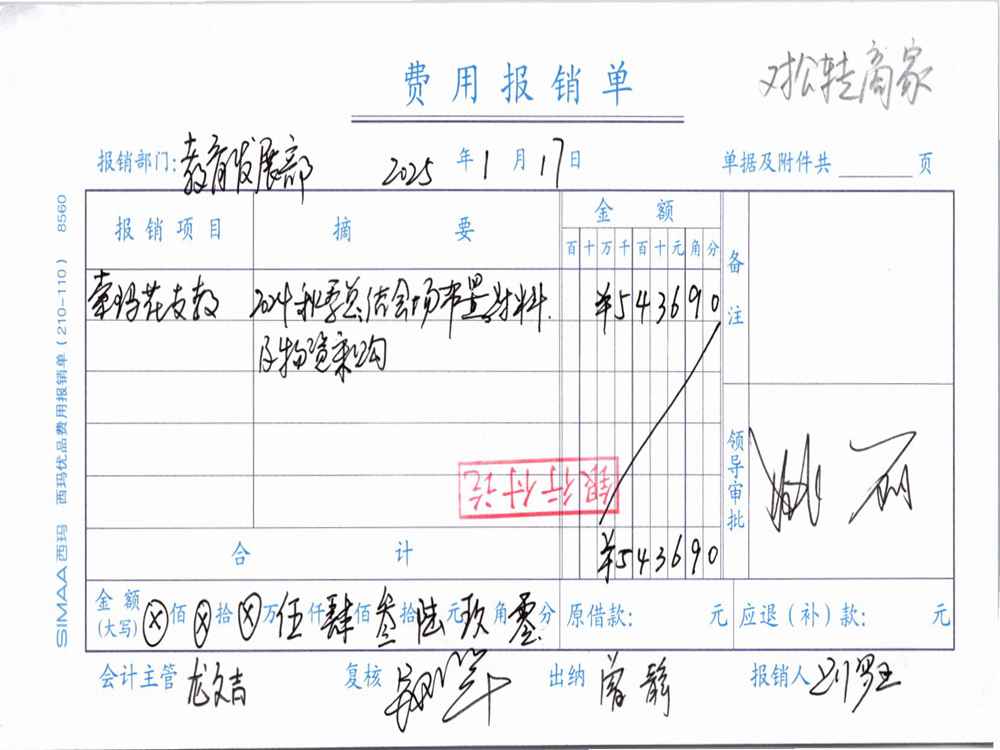 费用报销单
对松转商家
报销部门: 教育发展部 2025 年 1 月 17 日 单据及附件共 页
报销项目 摘要 金额 备注
百十万千百十元角分
索玛花支教 2024秋季总结会场布置材料 ¥543690
及物资采购
银行付讫
领导审批 姚丽
合计 ¥543690
金额(大写) ⊗佰⊗拾⊗万伍仟肆佰叁拾陆元玖角零分 原借款: 元 应退(补)款: 元
会计主管 龙文吉 复核 出纳 曾静 报销人
SIMAA西玛 西玛优品费用报销单(210-110) 8560